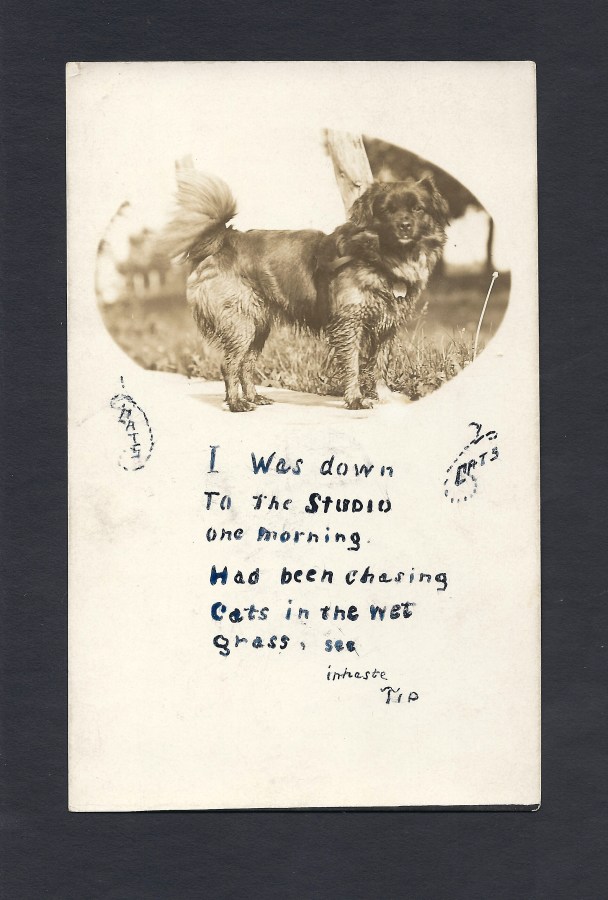 RATS
CATS
I Was down
To The STUDIO
one morning.
Had been chasing
Cats in the wet
grass, see
in haste
TIP